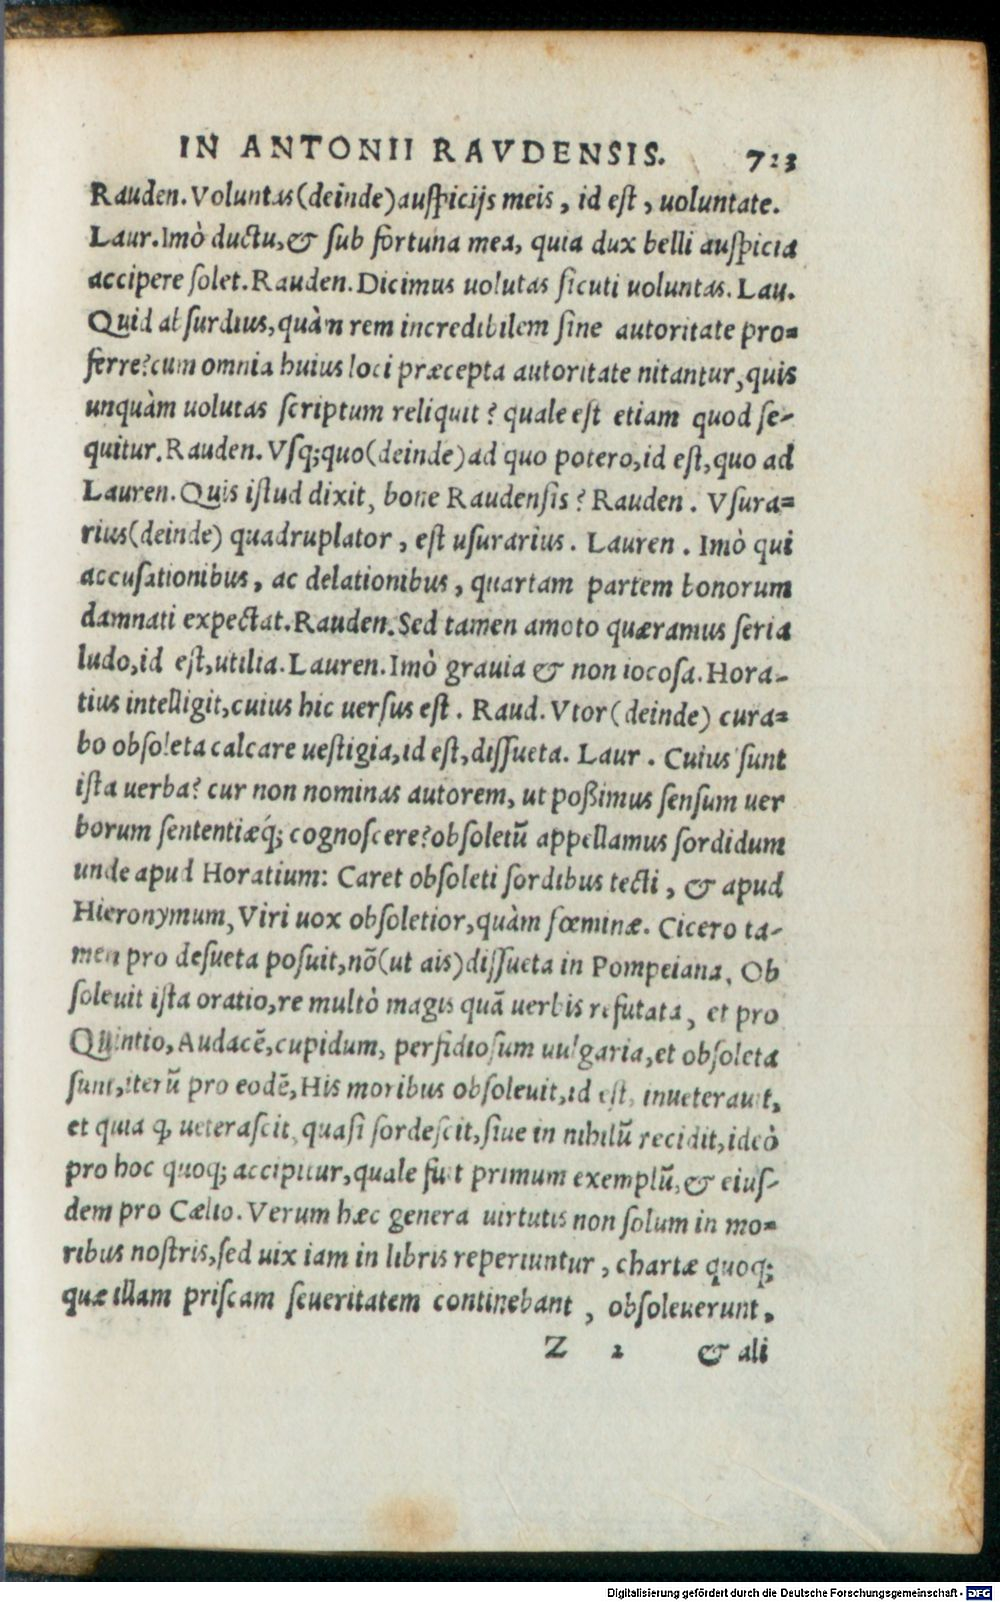 IN ANTONII RAVDENSIS. 723
Rauden. Voluntas (deinde) auspicijs meis, id est, uoluntate.
Laur. Imò ductu, & sub fortuna mea, quia dux belli auspicia
accipere solet. Rauden. Dicimus uolutas sicuti uoluntas. Lau.
Quid absurdius, quàm rem incredibilem sine autoritate pro=
ferre? cum omnia huius loci præcepta autoritate nitantur, quis
unquàm uolutas scriptum reliquit? quale est etiam quod se-
quitur. Rauden. Vsq; quo (deinde) ad quo potero, id est, quo ad
Lauren. Quis istud dixit, bone Raudensis? Rauden. Vsura=
rius (deinde) quadruplator, est usurarius. Lauren. Imò qui
accusationibus, ac delationibus, quartam partem bonorum
damnati expectat. Rauden. Sed tamen amoto quæramus seria
ludo, id est, utilia. Lauren. Imò grauia & non iocosa. Hora-
tius intelligit, cuius hic uersus est. Raud. Vtor (deinde) cura=
bo obsoleta calcare uestigia, id est, dissueta. Laur. Cuius sunt
ista uerba? cur non nominas autorem, ut poßimus sensum uer
borum sententiæq́; cognoscere? obsoletũ appellamus sordidum
unde apud Horatium: Caret obsoleti sordibus tecti, & apud
Hieronymum, Viri uox obsoletior, quàm fœminæ. Cicero ta-
men pro desueta posuit, nõ (ut ais) dissueta in Pompeiana, Ob
soleuit ista oratio, re multò magis quã uerbis refutata, et pro
Quintio, Audacẽ, cupidum, perfidiosum uulgaria, et obsoleta
sunt, iterũ pro eodẽ, His moribus obsoleuit, id est, inueterauit,
et quia ꝙ ueterascit, quasi sordescit, siue in nihilũ recidit, ideò
pro hoc quoq; accipitur, quale fuit primum exemplũ, & eius-
dem pro Cælio. Verum hæc genera uirtutis non solum in mo=
ribus nostris, sed uix iam in libris reperiuntur, chartæ quoq;
quæ illam priscam seueritatem continebant, obsoleuerunt,
Z 2 & ali
Digitalisierung gefördert durch die Deutsche Forschungsgemeinschaft - DFG